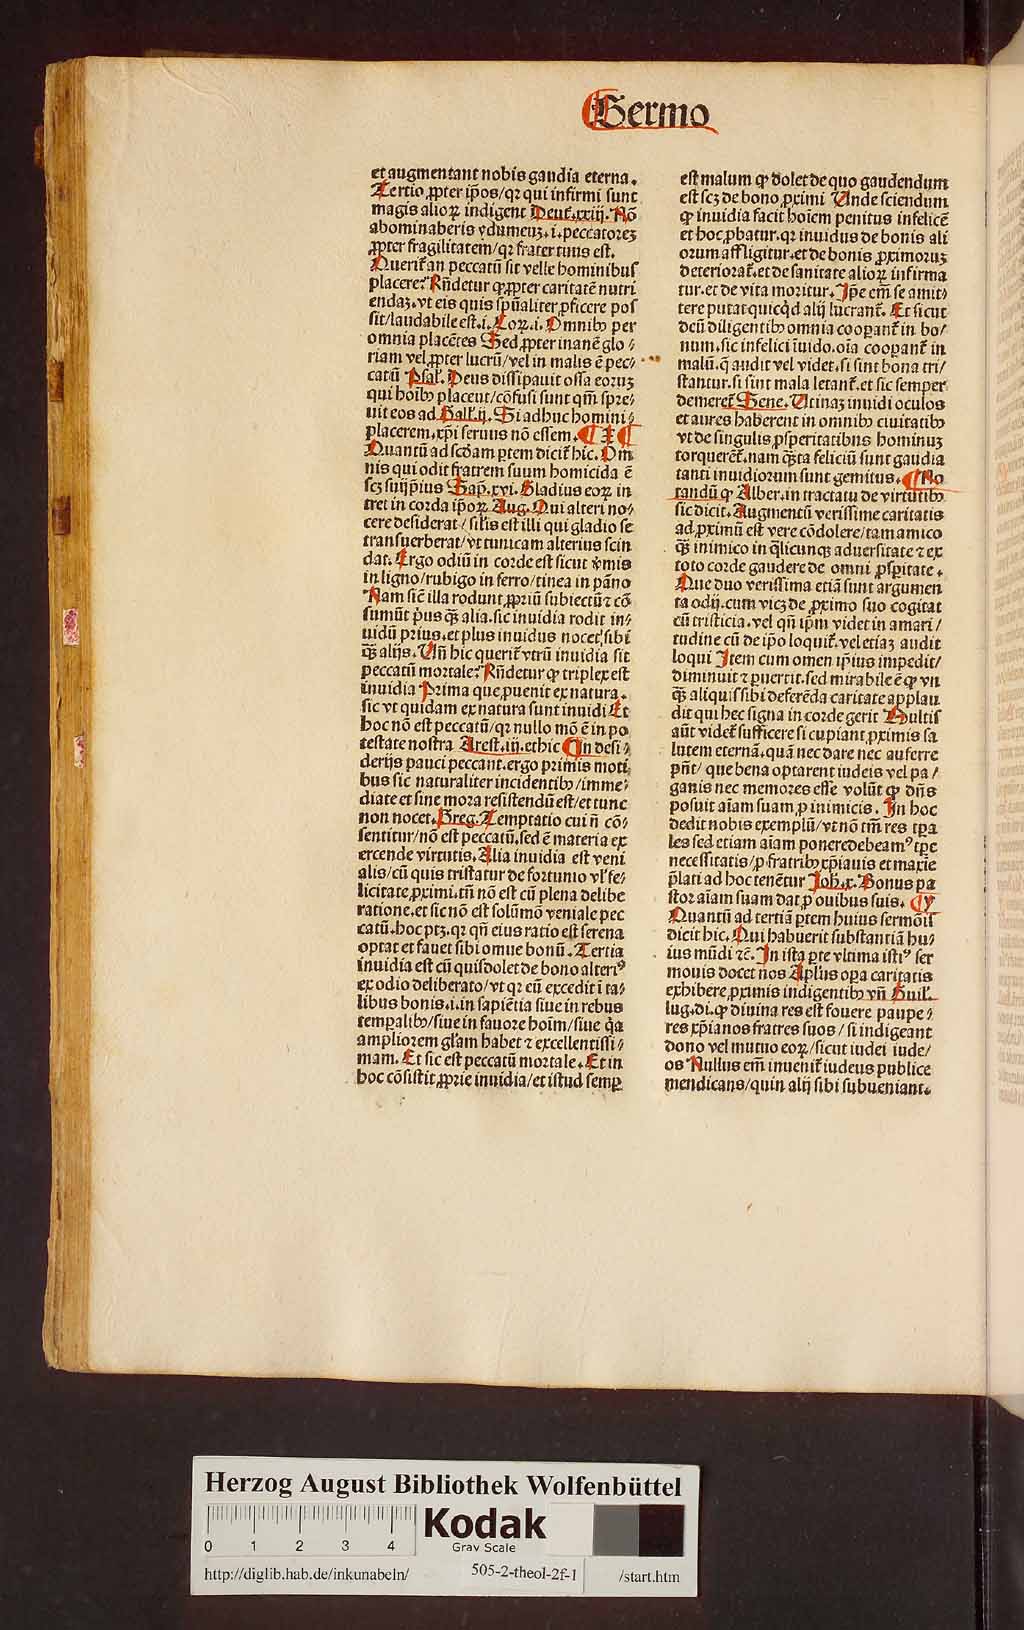 Sermo
et augmentant nobis gaudia eterna.
Tertio ꝓpter ip̄os/qꝛ qui infirmi sunt
magis alioꝝ indigent Deut̄.xxiij. Nō
abominaberis ydumeuꝫ.i.peccatoreꝫ
ꝓpter fragilitatem/qꝛ frater tuus est.
Querit̄ an peccatū sit velle hominibus
placere? Rn̄detur ꝙ ꝓpter caritatē nutri
endaꝫ.vt eis quis spūaliter ꝓficere pos
sit/laudabile est.i.Coꝝ.i. Omnibꝰ per
omnia placētes Sed ꝓpter inanē glo/
riam vel ꝓpter lucrū/vel in malis ē pec/
catū Psal̄. Deus dissipauit ossa eoruꝫ
qui hoībꝰ placent/cōfusi sunt qm̄ spre/
uit eos ad Gall̄.ij. Si adhuc homini/
placerem.xp̄i seruus nō essem. ¶ I ¶
Quantū ad scd̄am ꝑtem dicit̄ hic. Om
nis qui odit fratrem suum homicida ē
scꝫ suijp̄ius Sap̄.xvi. Gladius eoꝝ in
tret in corda ip̄oꝝ Aug. Qui alteri no/
cere desiderat/ sil̄is est illi qui gladio se
transuerberat/vt tunicam alterius scin
dat. Ergo odiū in corde est sicut v̄mis
in ligno/rubigo in ferro/tinea in pāno
Nam sic̄ illa rodunt ꝓpriū subiectū ⁊ cō
sumūt p̄us qꝫ alia.sic inuidia rodit in/
uidū prius.et plus inuidus nocet sibi
qꝫ alijs. Vn̄ hic querit̄ vtrū inuidia sit
peccatū mortale? Rn̄detur ꝙ triplex est
inuidia Prima que ꝓuenit ex natura.
sic vt quidam ex natura sunt inuidi Et
hoc nō est peccatū/qꝛ nullo mō ē in po
testate nostra Arest.iij.ethic ¶ In desi/
derijs pauci peccant.ergo primis moti
bus sic naturaliter incidentibꝰ/imme/
diate et sine mora resistendū est/et tunc
non nocet. Greg. Temptatio cui n̄ cō/
sentitur/nō est peccatū.sed ē materia ex
ercende virtutis. Alia inuidia est veni
alis/cū quis tristatur de fortunio vl̄ fe/
licitate ꝓximi.tn̄ nō est cū plena delibe
ratione.et sic nō est solūmō veniale pec
catū.hoc ptꝫ.qꝛ qn̄ eius ratio est serena
optat et fauet sibi omne bonū. Tertia
inuidia est cū quis dolet de bono alteriꝰ
ex odio deliberato/vt qꝛ eū excedit ī ta/
libus bonis.i.in sapiētia siue in rebus
temꝑalibꝰ/siue in fauore hoīm/siue q̄a
ampliorem gl̄am habet ⁊ excellentissi/
mam. Et sic est peccatū mortale. Et in
hoc cōsistit ꝓprie inuidia/et istud semꝑ
est malum ꝙ dolet de quo gaudendum
est scꝫ de bono ꝓximi Vnde sciendum
ꝙ inuidia facit hoīem penitus infelicē
et hoc ꝓbatur.qꝛ inuidus de bonis ali
orum affligitur.et de bonis ꝓximoruꝫ
deteriorat̄.et de sanitate alioꝝ infirma
tur.et de vita moritur. Ip̄e em̄ se amit/
tere putat quicq̄d alij lucrant̄. Et sicut
deū diligentibꝰ omnia cooꝑant̄ in bo/
num.sic infelici īuido.oīa cooꝑant̄ in
malū.q̄ audit vel videt.si sint bona tri/
stantur.si sint mala letant̄.et sic semper
demeret̄ Sene. Vtinaꝫ inuidi oculos
et aures haberent in omnibꝰ ciuitatibꝰ
vt de singulis ꝓsperitatibus hominuꝫ
torquerēt̄.nam qꝫta feliciū sunt gaudia
tanti inuidiorum sunt gemitus. ¶ No
tandū ꝙ Alber.in tractatu de virtutibꝰ
sic dicit. Augmentū verissime caritatis
ad ꝓximū est vere cōdolere/tam amico
qꝫ inimico in q̄licunqꝫ aduersitate ⁊ ex
toto corde gaudere de omni ꝓsꝑitate.
Que duo verissima etiā sunt argumen
ta odij.cum vicꝫ de ꝓximo suo cogitat
cū tristicia.vel qn̄ ip̄m videt in amari/
tudine cū de ip̄o loquit̄.vel etiaꝫ audit
loqui Item cum omen ip̄ius impedit/
diminuit ⁊ ꝑuertit.sed mirabile ē ꝙ vn
qꝫ aliquis sibi deferēda caritate applau
dit qui hec signa in corde gerit Multis
aūt videt̄ sufficere si cupiant ꝓximis sa
lutem eternā.quā nec dare nec auferre
pn̄t/ que bena optarent iudeis vel pa/
ganis nec memores esse volūt ꝙ dn̄s
posuit aīam suam ꝓ inimicis. In hoc
dedit nobis exemplū/vt nō tm̄ res tꝑa
les sed etiam aīam ponere debeamꝰ tꝑe
necessitatis/ꝓ fratribꝰ xp̄ianis et maxīe
p̄lati ad hoc tenētur Joh̄.x. Bonus pa
stor aīam suam dat ꝓ ouibus suis. ¶ y
Quantū ad tertiā ꝑtem huius sermōis
dicit hic. Qui habuerit substantiā hu/
ius mūdi ⁊c̄. In ista ꝑte vltima istiꝰ ser
monis docet nos Apl̄us oꝑa caritatis
exhibere ꝓximis indigentibꝰ vn̄ Guil̄.
lug.di.ꝙ diuina res est fouere paupe/
res xp̄ianos fratres suos/ si indigeant
dono vel mutuo eoꝝ/sicut iudei iude/
os Nullus em̄ inuenit̄ iudeus publice
mendicans/quin alij sibi subueniant.
Herzog August Bibliothek Wolfenbüttel
0 1 2 3 4
Kodak
Gray Scale
http://diglib.hab.de/inkunabeln/
505-2-theol-2f-1
/start.htm